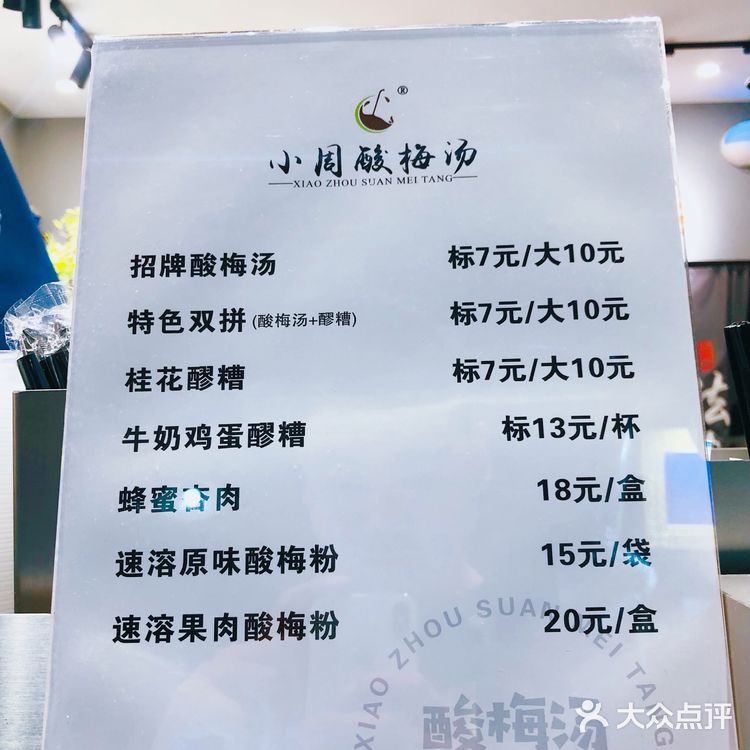 ®
小周酸梅汤
XIAO ZHOU SUAN MEI TANG
招牌酸梅汤 标7元/大10元
特色双拼(酸梅汤+醪糟) 标7元/大10元
桂花醪糟 标7元/大10元
牛奶鸡蛋醪糟 标13元/杯
蜂蜜杏肉 18元/盒
速溶原味酸梅粉 15元/袋
速溶果肉酸梅粉 20元/盒
XIAO ZHOU SUAN MEI TANG
酸梅汤
大众点评